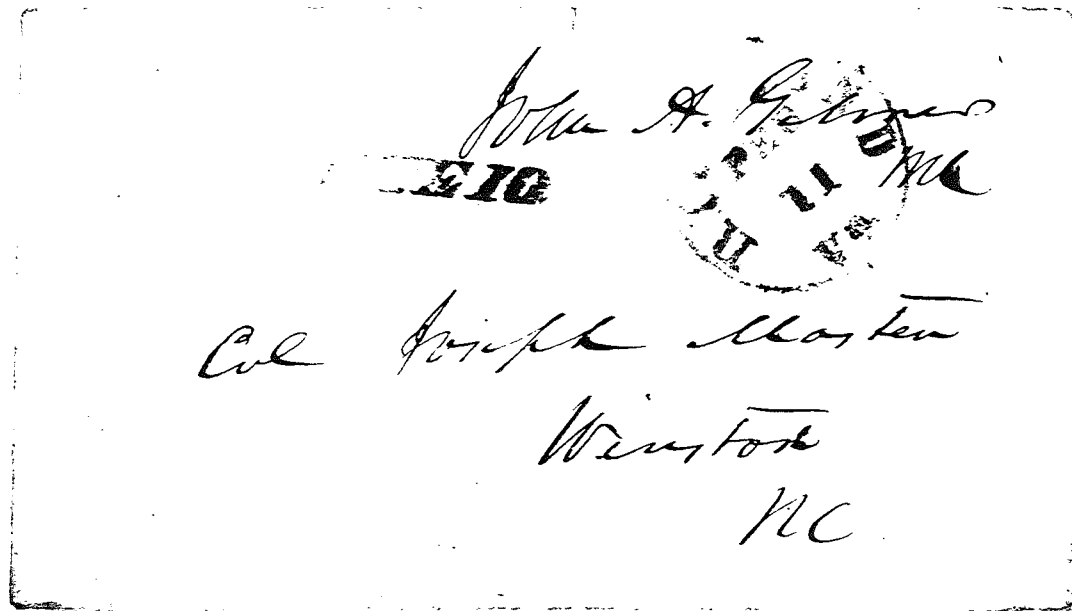 John A. Gilmer
MC
Col Joseph Masten
Winston
NC
11
VA